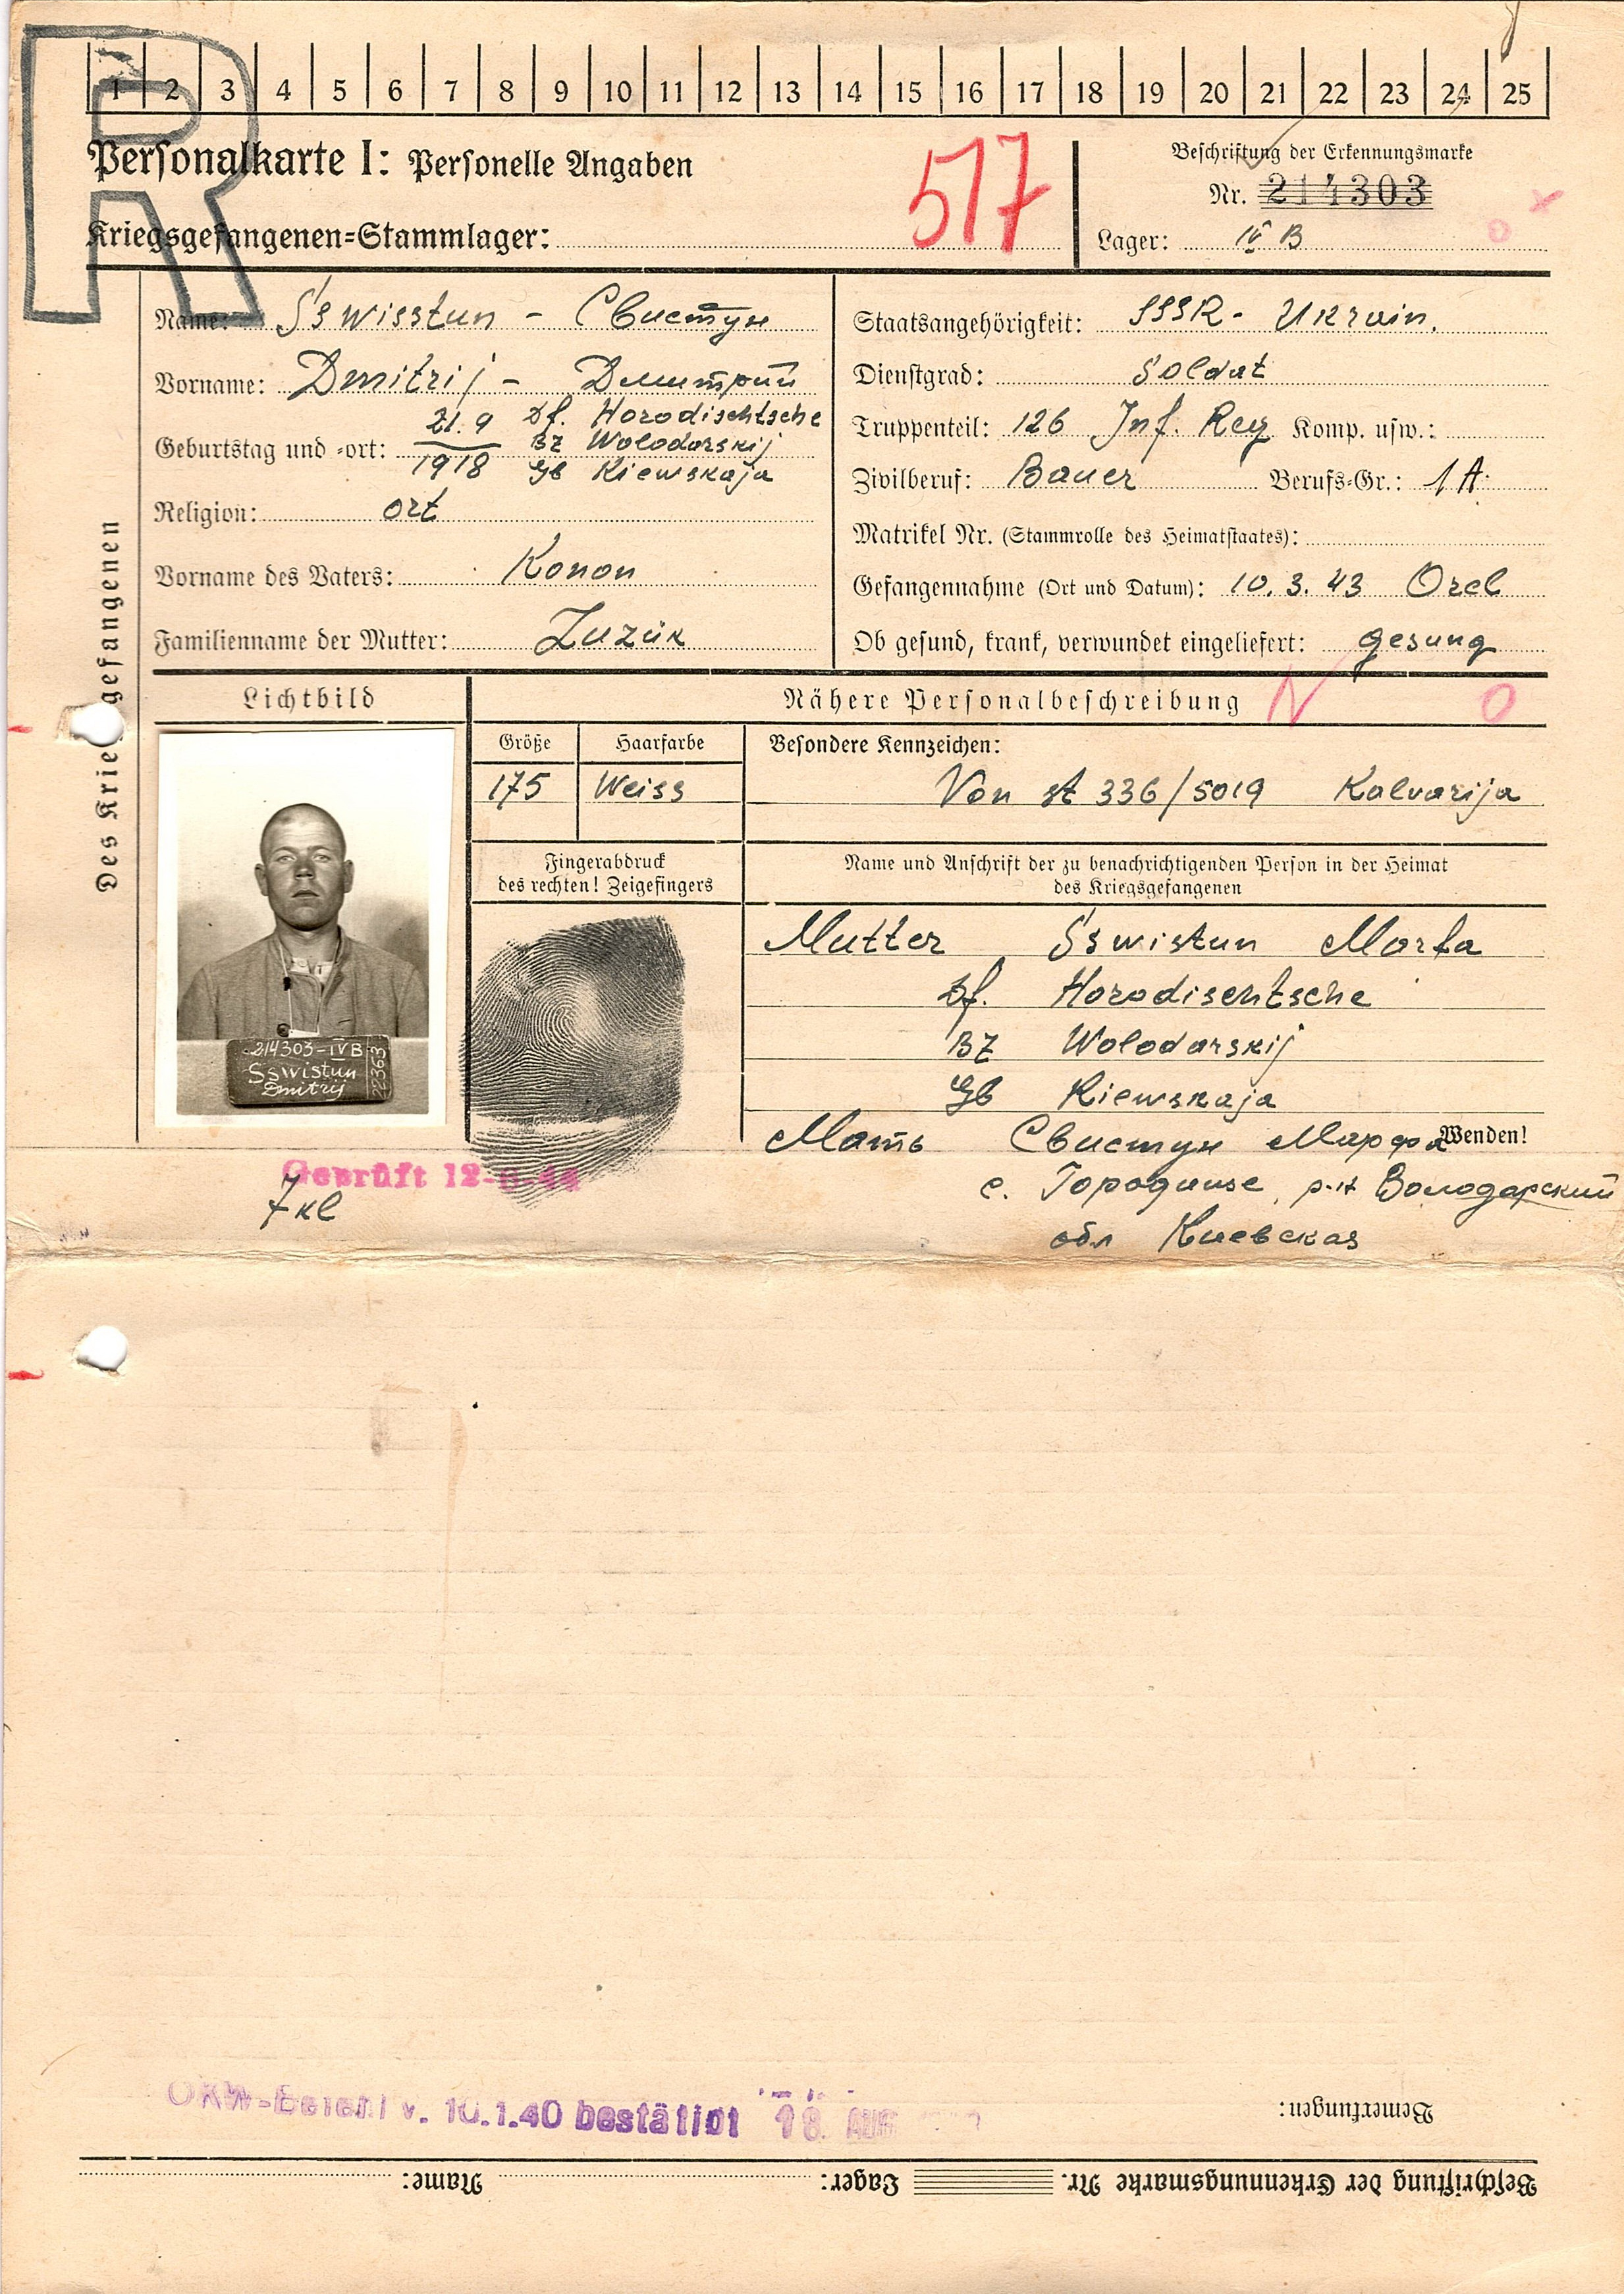 1 2 3 4 5 6 7 8 9 10 11 12 13 14 15 16 17 18 19 20 21 22 23 24 25
R
Personalkarte I: Personelle Angaben
517
Beschriftung der Erkennungsmarke
Nr. 214303
Kriegsgefangenen=Stammlager:
Lager: IV B
Des Kriegsgefangenen
Name: Sswisstun - Свистун
Vorname: Dmitrij - Дмитрий
Geburtstag und -ort: 21.9 1918 Df. Horodischtsche
Bz Wolodarskij
Gb Kiewskaja
Religion: ort
Vorname des Vaters: Konon
Familienname der Mutter: Zuzuk
Staatsangehörigkeit: SSSR - Ukrain.
Dienstgrad: Soldat
Truppenteil: 126 Inf. Reg Komp. usw.:
Zivilberuf: Bauer Berufs-Gr.: 1A
Matrikel Nr. (Stammrolle des Heimatstaates):
Gefangennahme (Ort und Datum): 10.3.43 Orel
Ob gesund, krank, verwundet eingeliefert: gesung
Lichtbild
Nähere Personalbeschreibung
N O
Größe
Haarfarbe
Besondere Kennzeichen:
175
Weiss
Von St 336/5019 Kalvarija
Fingerabdruck
des rechten! Zeigefingers
Name und Anschrift der zu benachrichtigenden Person in der Heimat
des Kriegsgefangenen
Mutter Sswistun Marfa
Df. Horodischtsche
Bz Wolodarskij
Gb Kiewskaja
214303-IVB
Sswistun
Dmitrij
22363
Мать Свистун Марфа
Wenden!
с. Городище, р-н Володарский
обл Киевская
Geprüft 12-
7 кл
OKW-Befehl v. 10.1.40 bestätigt 18. AUG
Bemerkungen:
Beschriftung der Erkennungsmarke Nr. Lager: Name: